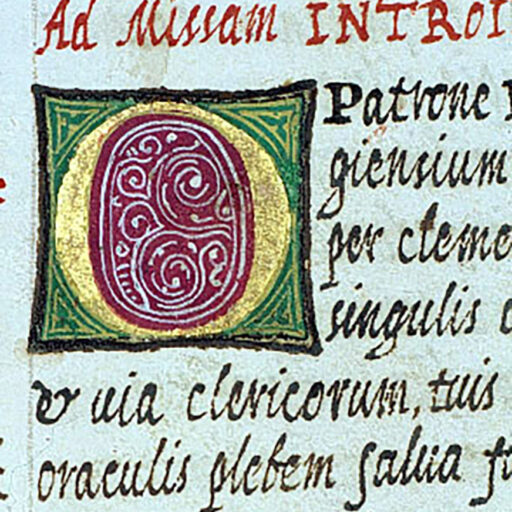 Ad Missam INTROI
O Patrone
giensium
per cleme
singulis
& uia clericorum, tuis
oraculis plebem salua